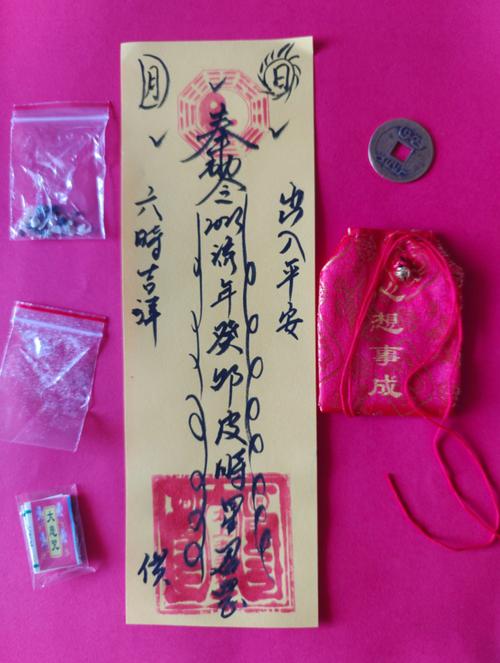 日
月
奉勅令
流年癸卯皮時星君罡
出入平安
六時吉祥
供
心想事成
大悲咒